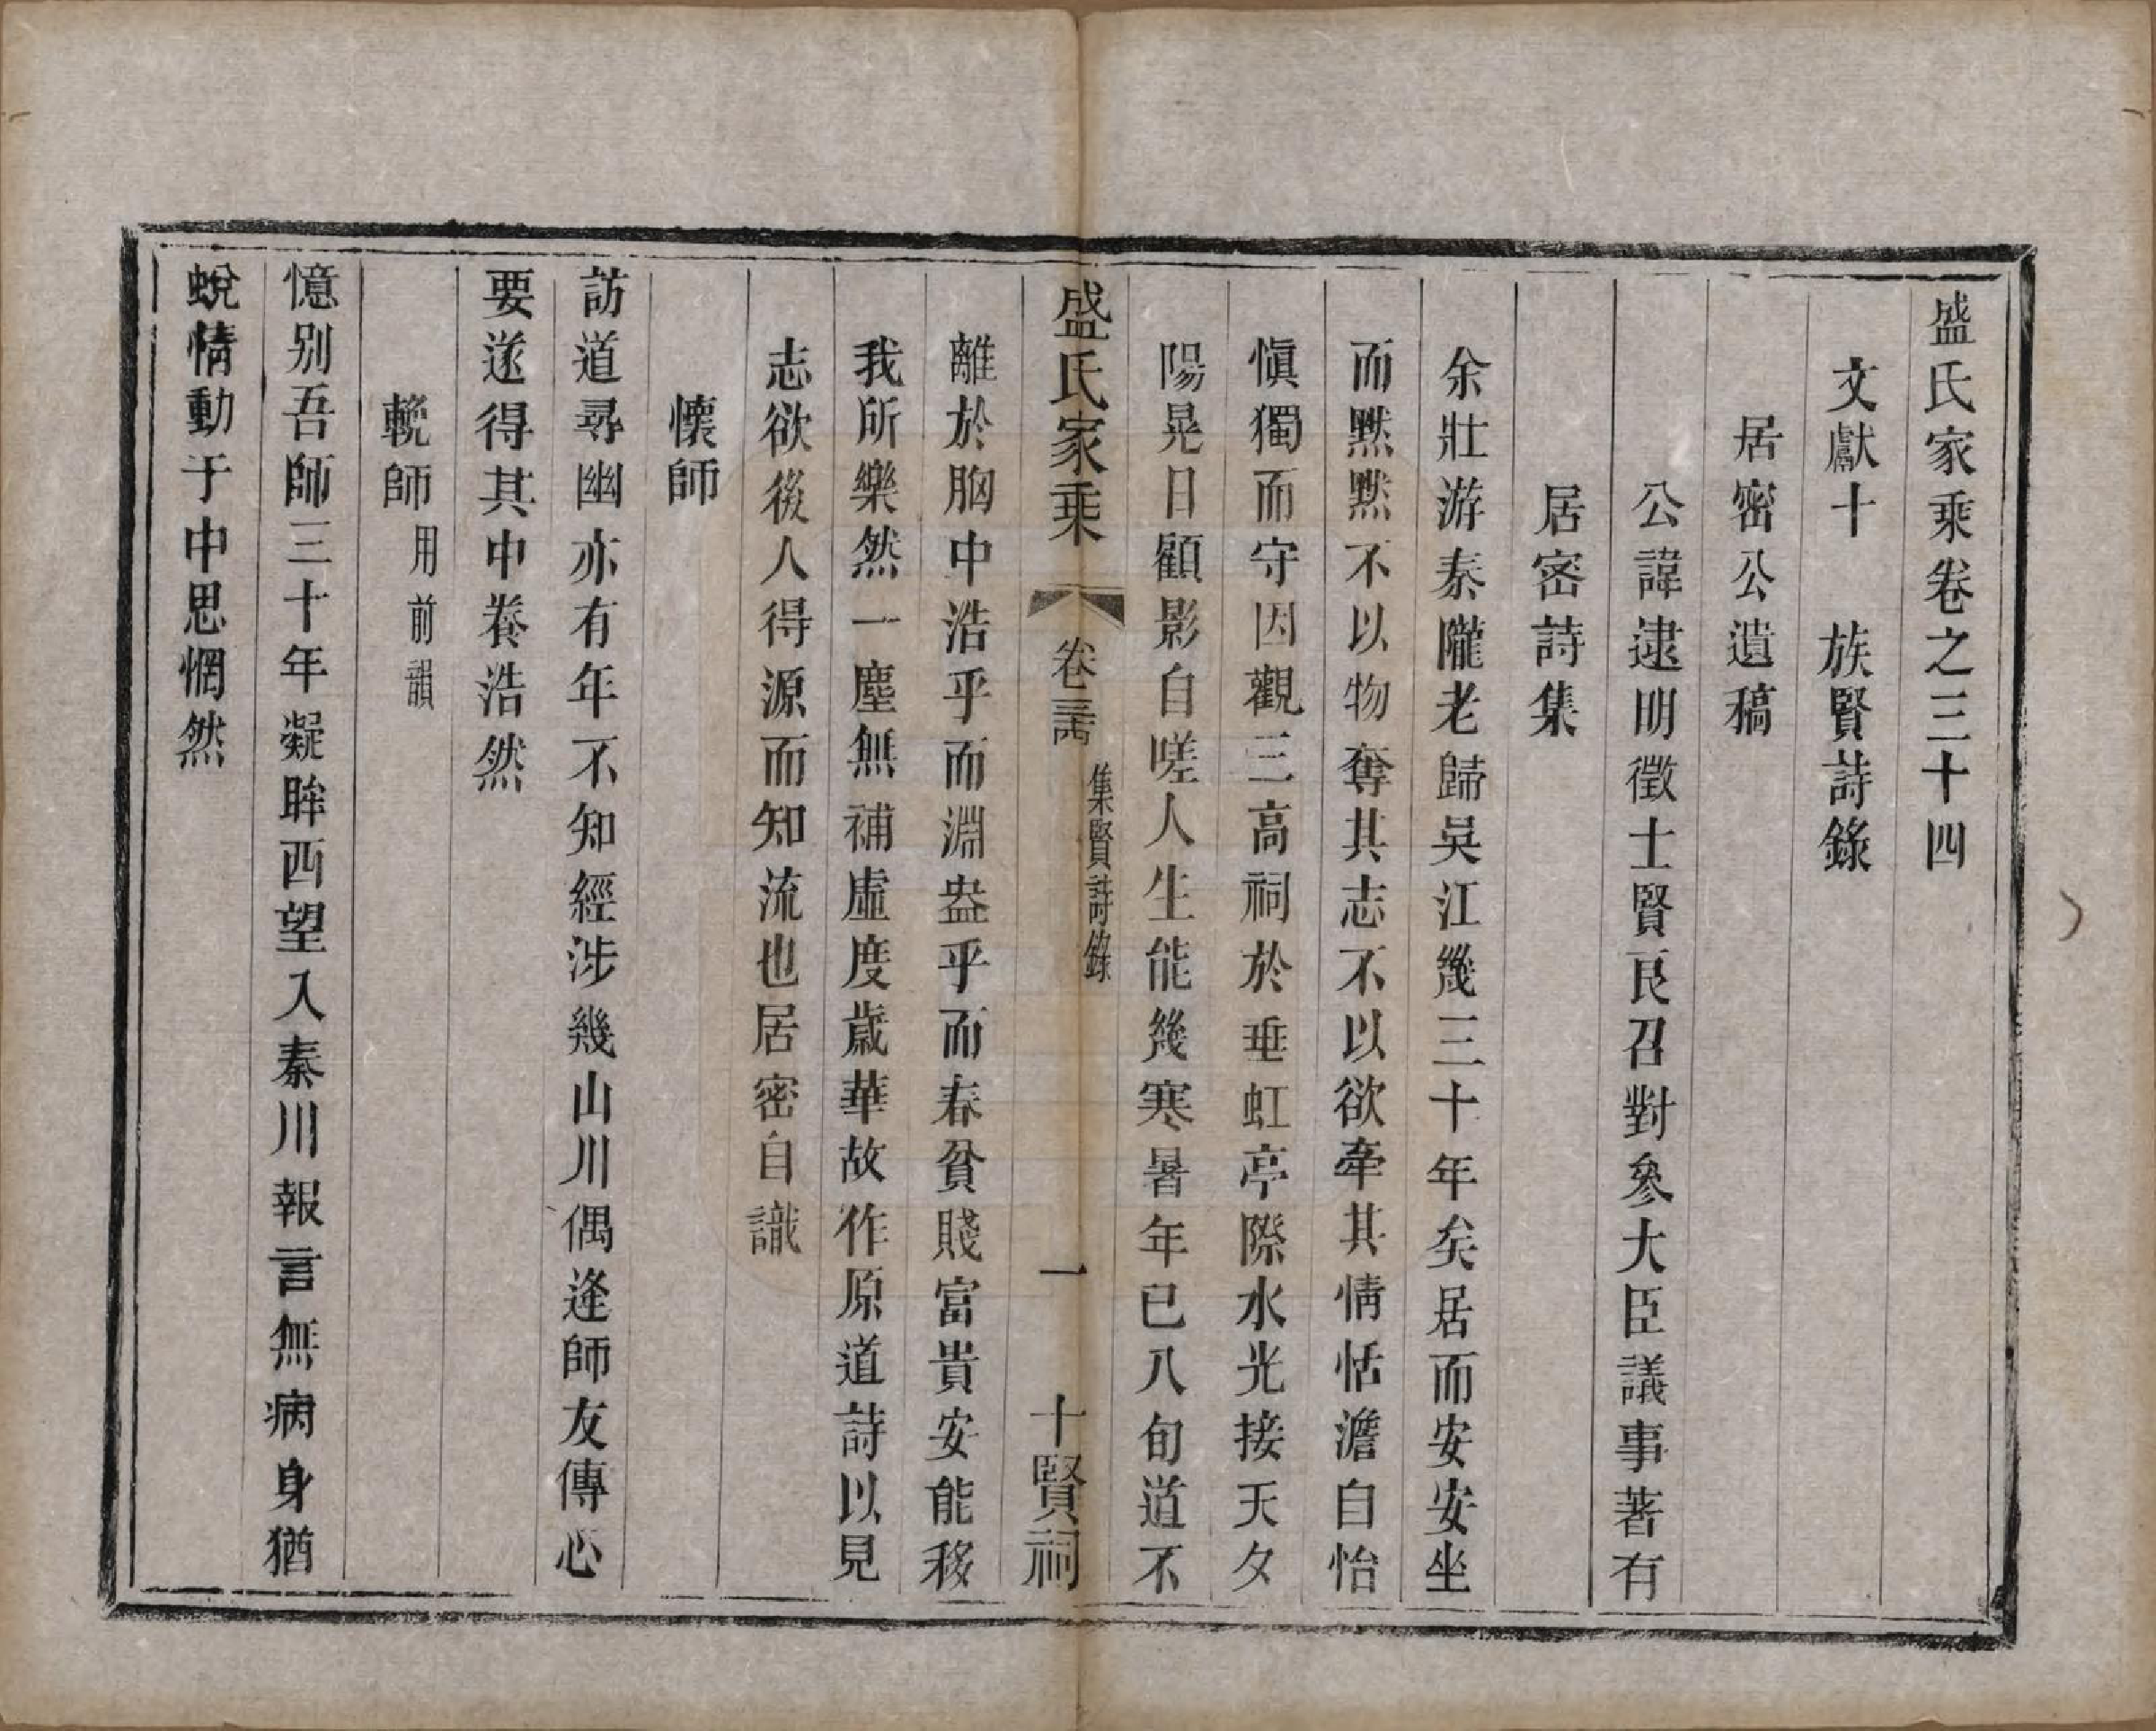 盛氏家乘卷之三十四
文獻十　族賢詩錄
居密公遺稿
公諱逮明徵士賢良召對參大臣議事著有
居密詩集
余壯游秦隴老歸吳江幾三十年矣居而安安坐
而默默不以物奪其志不以欲牽其情恬澹自怡
愼獨而守因觀三高祠於垂虹亭際水光接天夕
陽晃日顧影自嗟人生能幾寒暑年已八旬道不
盛氏家乘　卷三十四　集賢詩錄　一　十賢祠
離於胸中浩乎而淵盎乎而春貧賤富貴安能移
我所樂然一塵無補虛度歲華故作原道詩以見
志欲後人得源而知流也居密自識
懷師
訪道尋幽亦有年不知經涉幾山川偶逢師友傳心
要遂得其中養浩然
輓師用前韻
憶別吾師三十年凝眸西望入秦川報言無病身猶
蛻情動于中思惘然